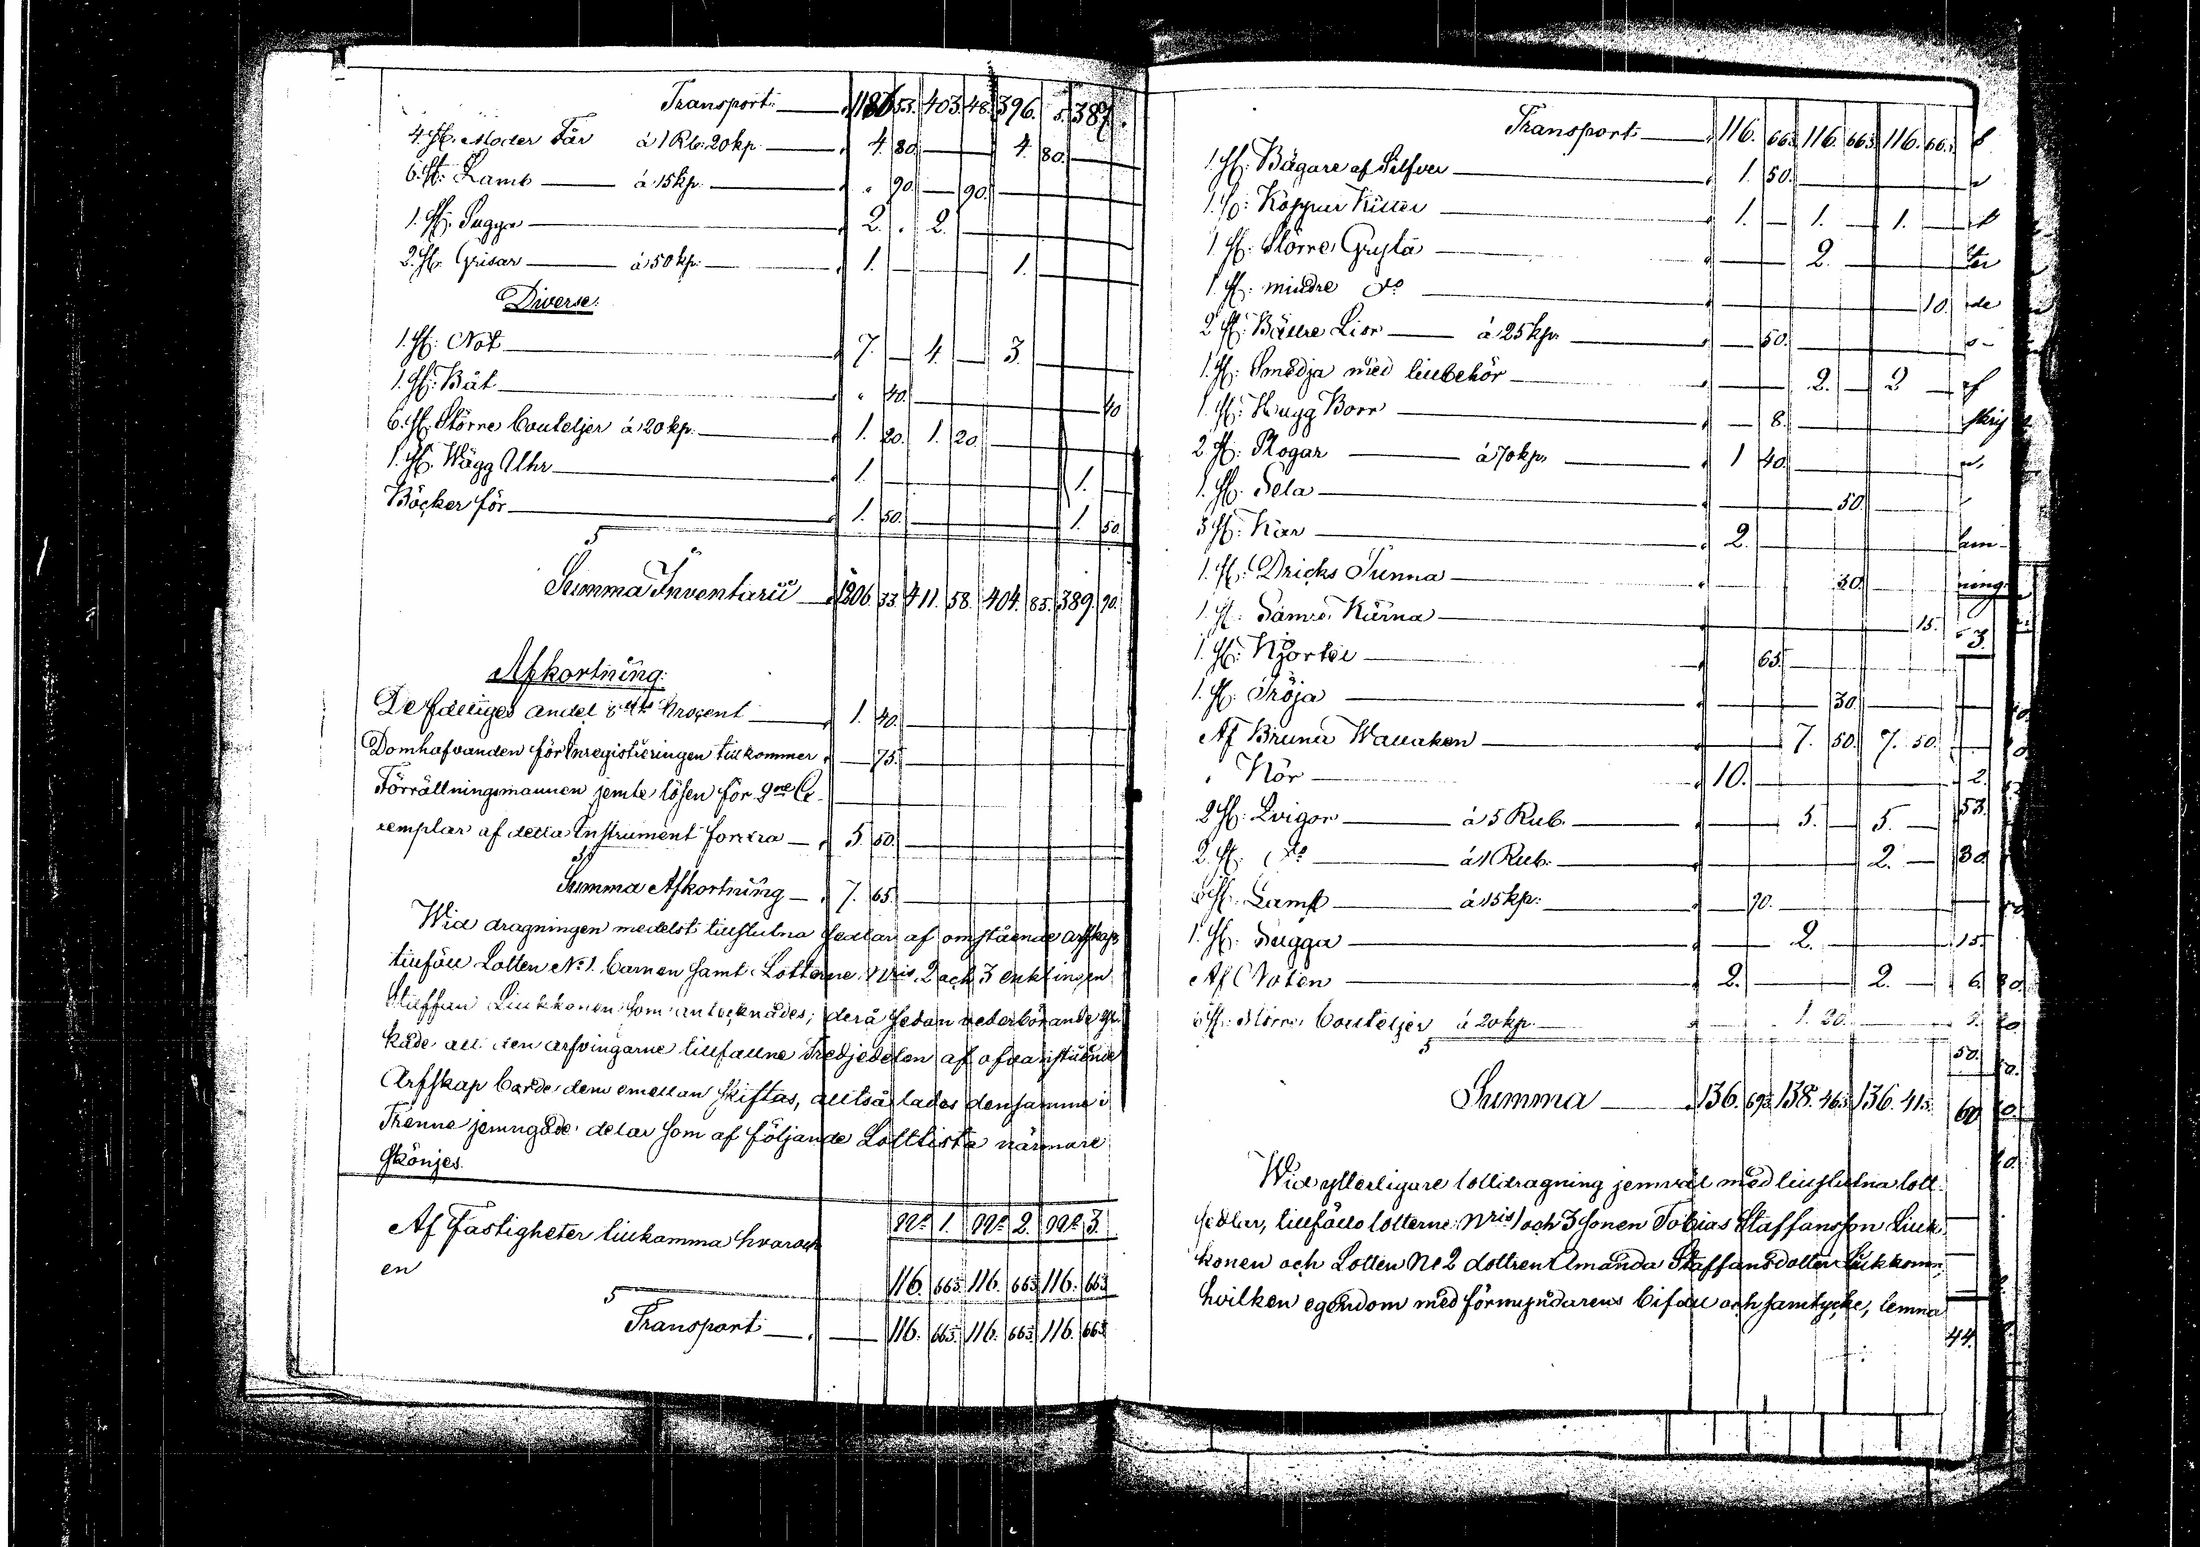 Transport 1186 53. 403. 48. 396. 5. 387.
4 St. Moder Får á 1 Rb: 20 kp. 4. 80. 4. 80.
6. St: Lamb á 15 kp. 90. 90.
1. St: Sugga 2. 2.
2. St. Grisar á 50 kp. 1. 1.
Diverse.
1. St: Not 7. 4. 3.
1. St: Båt 40. 40
6. St. Större bouteljer á 20 kp. 1. 20. 1. 20.
1. St. Wägg Uhr 1. 1.
Böcker för 1. 50. 1. 50
Summa Inventarii 1206. 33. 411. 58. 404. 85. 389. 90.
Afkortning.
De fattiges andel Procent 1. 40.
Domhafvanden för Inregistreringen tillkommer 75.
Förrättningsmannen jemte lösen för Ex-
emplar af detta Instrument 5. 50.
Summa Afkortning 7. 65.
Wid dragningen medelst tillslutna sedlar af omstående arfskap
tillföll Lotten No 1. barnen samt Lotterne Nris 2 och 3 enklingen
Staffan Liukkonen som antecknades; derå sedan vederbörande
kade att den arfvingarne tillfallne Tredjedelen af ofvanstående
Arfskap borde dem emellan skiftas, alltså lades densamma i
Trenne jemngode delar som af följande Lottlista närmare
skönjes.
No 1. No 2. No 3.
Af Fastigheter tillkomma hvar och
en 116. 665. 116. 665. 116. 665
Transport 116. 665. 116. 665. 116. 665

Transport 116. 665. 116. 665. 116. 665.
1. St: Bägare af Silfver 1. 50.
1. St: Koppar Kittel 1. 1. 1.
1 St: Större Gryta 2.
1. St. mindre do 10.
2 St: Bättre Lior á 25 kp. 50.
1. St: Smedja med tillbehör 2. 2
1. St: Hugg Borr 8.
2 St: Plogar á 70 kp. 1 40.
1. St. Sela 50.
3 St: Kar 2.
1. St: Dricks Tunna 30.
1. St: Kärna 15.
1. St: Kjortel 65.
1. St: Tröja 30.
Af Bruna Wallaken 7. 50. 7. 50.
Kor 10.
2 St. Qvigor á 5 Rub. 5. 5.
2. St: do á 1 Rub. 2.
6 St: Lamb á 15 kp: 90.
1. St: Sugga 2.
Af Noten 2. 2.
6 St: Större bouteljer á 20 kp. 1. 20.
Summa 136. 695. 138. 465. 136. 415.
Wid ytterligare lottdragning jemväl med tillslutna lott-
sedlar, tillföllo lotterne Nris 1 och 3 sonen Tobias Staffansson Liuk-
konen och Lotten No 2 dottren Amanda Staffansdotter Liukkonen,
hvilken egendom med förmyndarens bifall och samtycke, lemna
44.